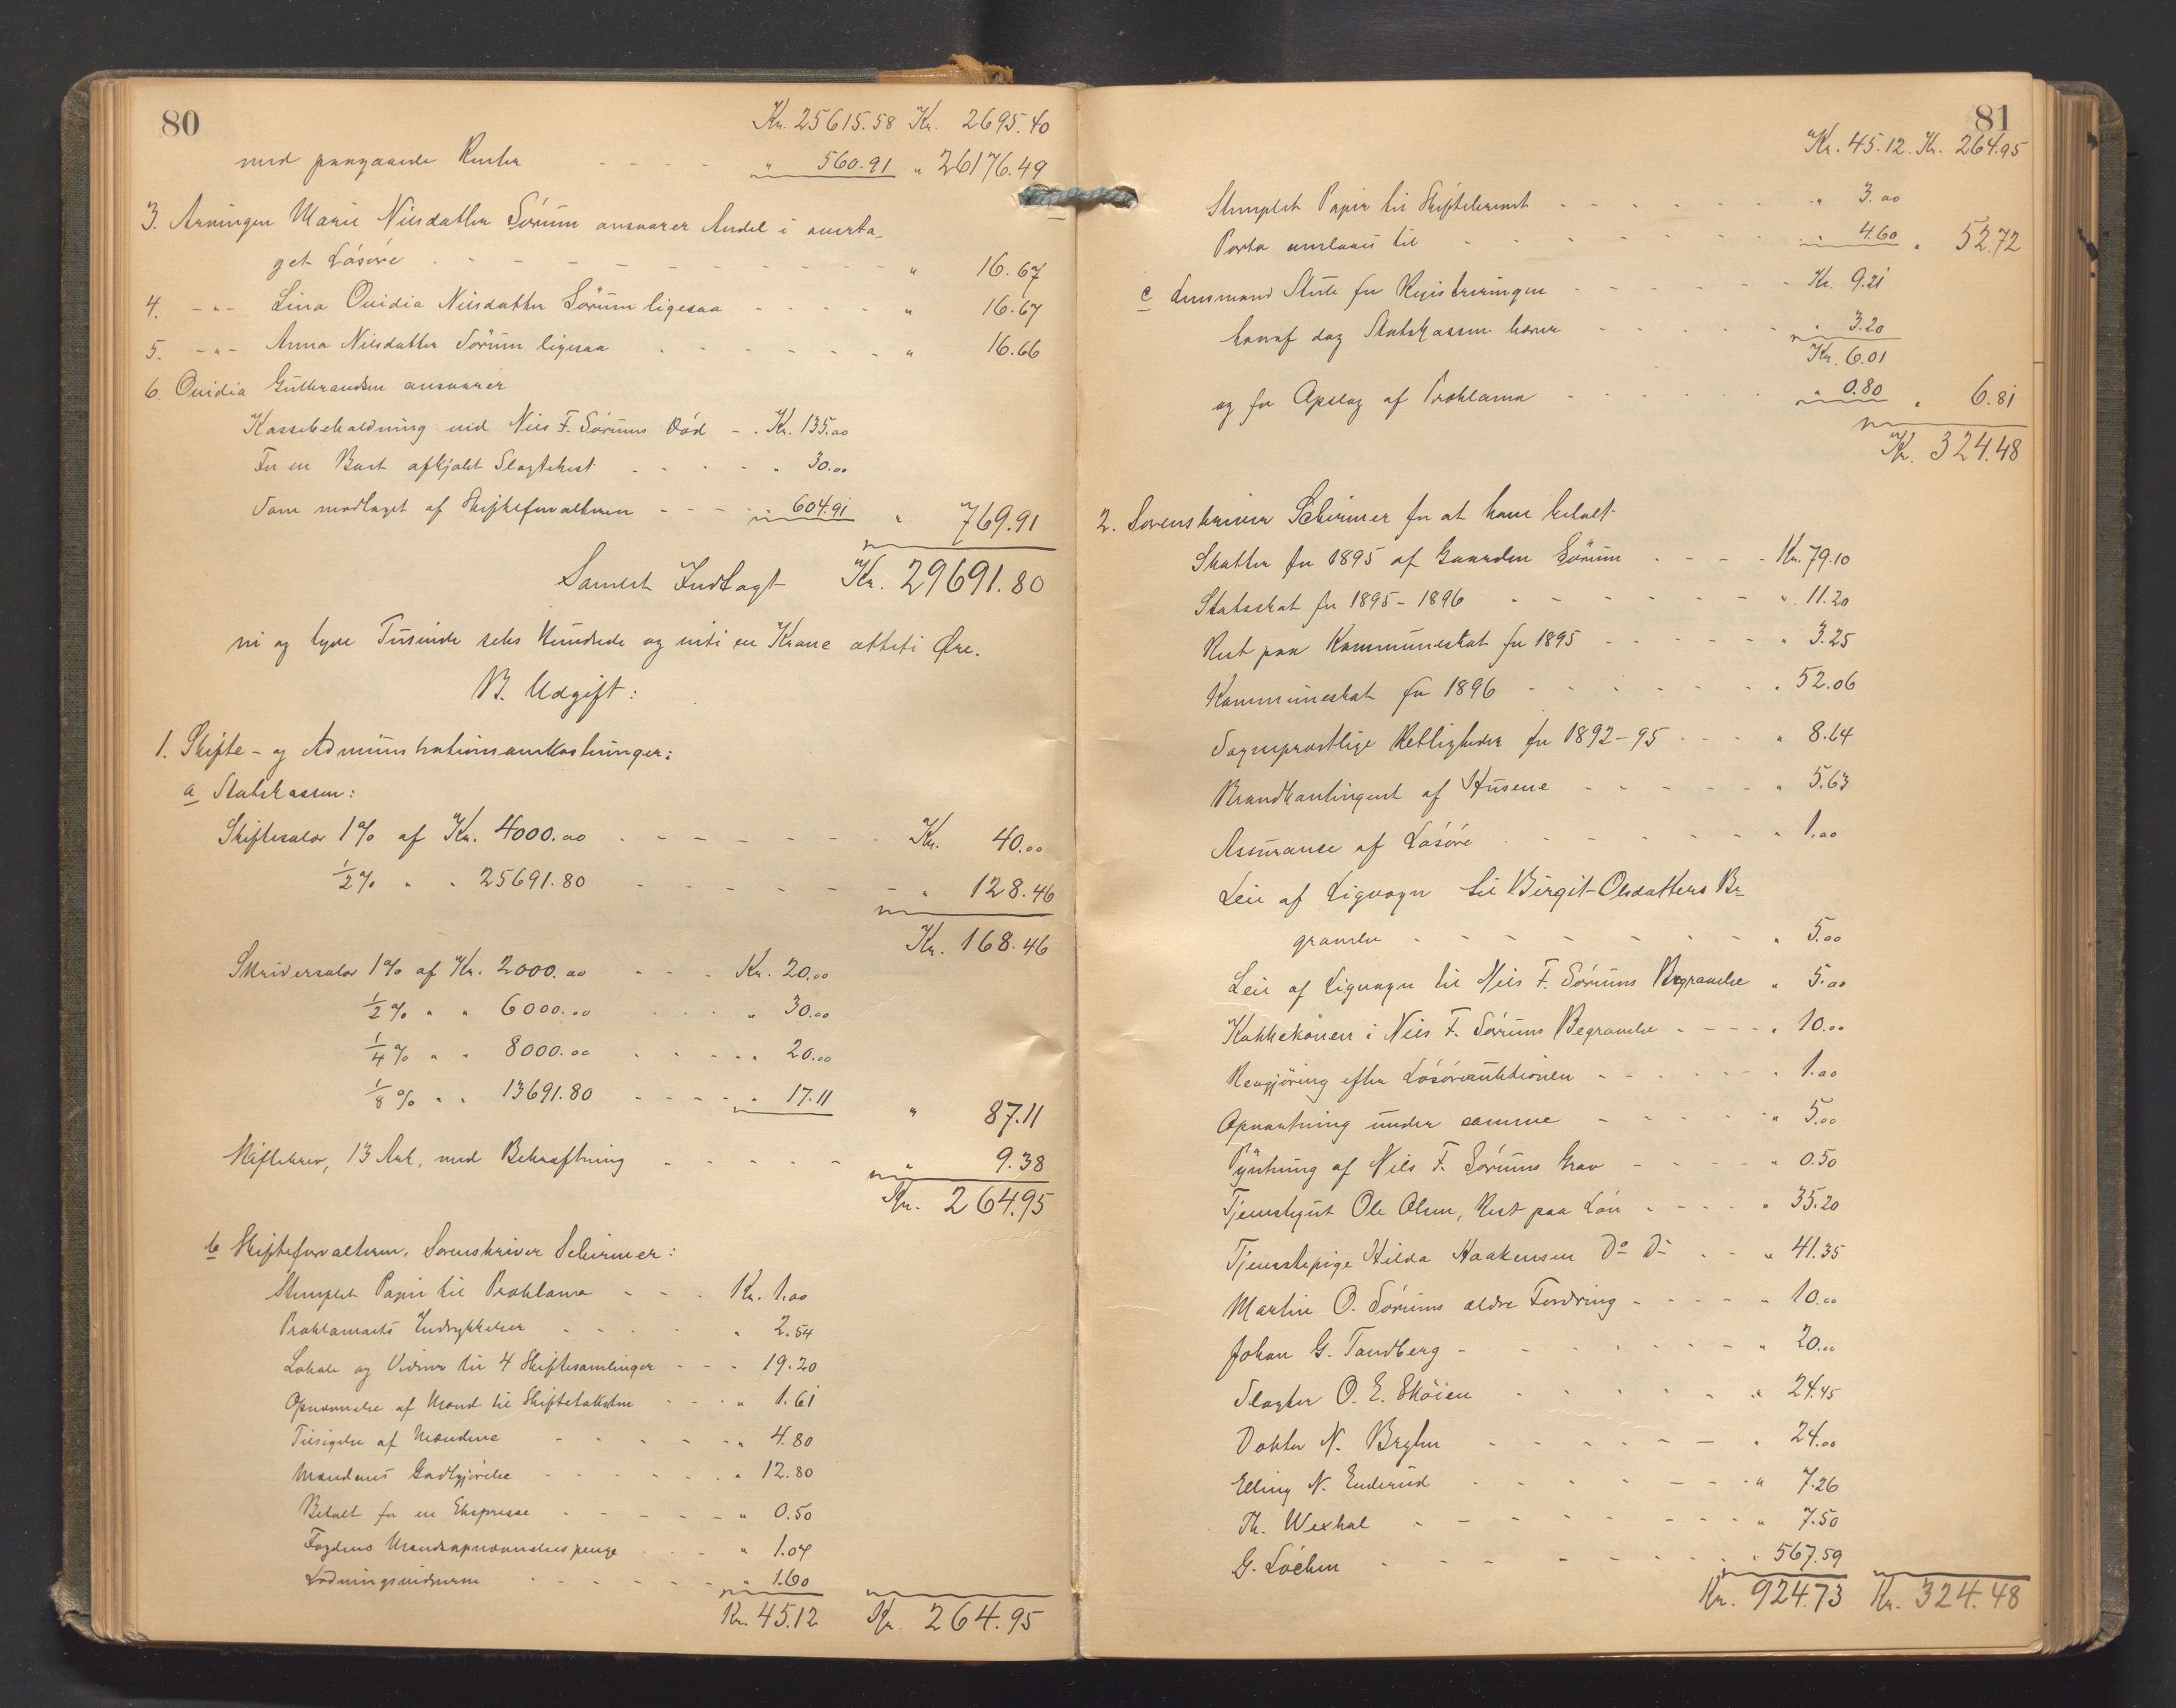 80
Kr. 25615.58 Kr. 2695.40
med paagaaende Renter - - - - " 560.91 " 26176.49
3. Arvingen Marie Nilsdatter Sörum ansvarer Andel i overta-
get Lösöre - - - - - - - - " 16.67
4. -"- Lina Ovidia Nilsdatter Sörum ligesaa - - - - " 16.67
5. -"- Anna Nilsdatter Sörum ligesaa - - - - - - " 16.66
6. Ovidia Gulbrandsen ansvarer
Kassebeholdning ved Nils F. Sörums Död - . Kr. 135.00
For en Bart afkjöbt Slagtehest - - - - " 30.00
Som modtaget af Skifteforvalteren - - - " 604.91 " 769.91
Samlet Indtægt Kr. 29691.80
ni og tyve Tusinde seks Hundrede og niti en Krone otteti Øre.
B. Udgift:
1. Skifte- og Administrationsomkostninger:
a Statskassen:
Skiftesalær 1% af Kr. 4000.00 - - - - - - Kr. 40.00
½% " " 25691.80 - - - - - - " 128.46
Kr. 168.46
Skriversalær 1% af Kr. 2000.00 - - - Kr. 20.00
½% " " 6000.00 - - - " 30.00
¼% " " 8000.00 - - - " 20.00
⅛% " " 13691.80 - - - " 17.11 " 87.11
Skiftebrev, 13 Ark, med Bekræftning - - - - - " 9.38
Kr. 264.95
b Skifteforvalteren, Sorenskriver Schirmer:
Stemplet Papir til Proklama - - - Kr. 1.00
Proklamaets Indrykkelser - - - - " 2.54
Lokale og Vidner til 4 Skiftesamlinger - - - 19.20
Opnævnelse af Mænd til Skiftetaksten - - - " 1.61
Tilsigelse af Mændene - - - - - " 4.80
Mændenes Godtgjörelse - - - - - " 12.80
Betalt for en Ekspresse - - - - - " 0.50
Fogdens Mandsopnævnelsespenge - - - " 1.07
Lodningsvidnerne - - - - - - " 1.60
Kr. 45.12 Kr. 264.95
81
Kr. 45.12. Kr. 264.95
Stemplet Papir til Skiftebrevet - - - - - - " 3.00
Porto anslaaes til - - - - - - - " 4.60 " 52.72
c Lensmand Stüle for Registreringen - - - - - - Kr. 9.21
heraf dog Statskassen bærer - - - - " 3.20
Kr. 6.01
og for Opslag af Proklama - - - - - " 0.80 " 6.81
Kr. 324.48
2. Sorenskriver Schirmer for at have betalt
Skatter for 1895 af Gaarden Sörum - - - - Kr. 79.10
Statsskat for 1895-1896 - - - - - - - " 11.20
Rest paa Kommuneskat for 1895 - - - - - " 3.25
Kommuneskat for 1896 - - - - - - - " 52.06
Sogneprestlige Rettigheder for 1892-95 - - - - " 8.64
Brandkontingent af Husene - - - - - - " 5.63
Assurance af Lösöre - - - - - - - " 1.00
Leie af Ligvogn til Birgit Olsdatters Be-
gravelse - - - - - - - - " 5.00
Leie af Ligvogn til Nils F. Sörums Begravelse " 5.00
Kokkekonen i Nils F. Sörums Begravelse - - - - " 10.00
Rengjöring efter Lösöreauktionen - - - - - " 1.00
Opvartning under samme - - - - - " 5.00
Pyntning af Nils F. Sörums Grav - - - - " 0.50
Tjenestegut Ole Olsen, Rest paa Lön - - - - " 35.20
Tjenestepige Hilda Haakensen Do Do - - " 41.35
Martin O. Sörums ældre Fordring - - - - - " 10.00
Johan G. Tandberg - - - - - - - " 20.00
Slagter O. E. Sköien - - - - - - " 24.45
Doktor N. Bryhn - - - - - - - " 24.00
Elling N. Enderud - - - - - - - " 7.26
Th. Wexhal - - - - - - - - " 7.50
G. Löchen - - - - - - - " 567.59
Kr. 924.73 Kr. 324.48